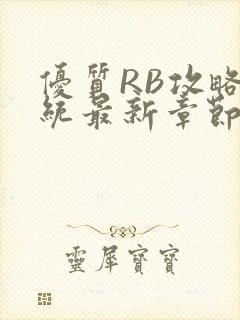 優質RB攻略
統最新章節
靈犀寶寶